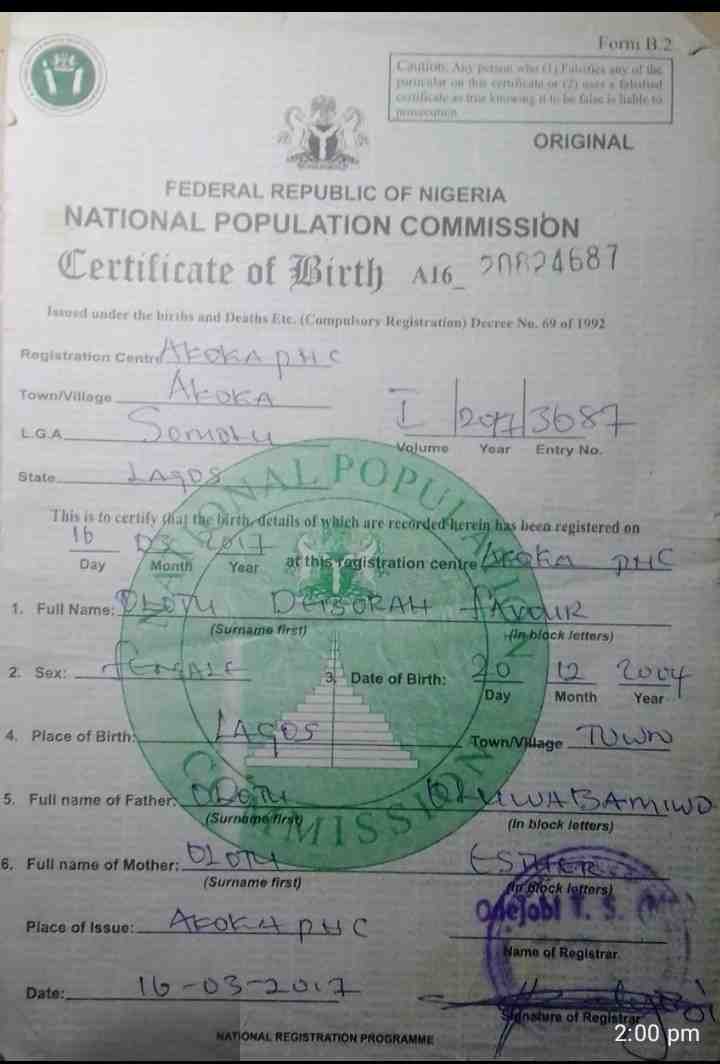 Form B.2
Caution: Any person who (1) Falsifies any of the
particular on this certificate or (2) uses a falsified
certificate as true knowing it to be false is liable to
prosecution
ORIGINAL
FEDERAL REPUBLIC OF NIGERIA
NATIONAL POPULATION COMMISSION
Certificate of Birth A16_ 20824687
Issued under the births and Deaths Etc. (Compulsory Registration) Decree No. 69 of 1992
Registration Centre AKOKA PHC
Town/Village AKOKA
L.G.A. Somolu
I 2017 3687
Volume Year Entry No.
State LAGOS
This is to certify that the birth, details of which are recorded herein has been registered on
16 03 2017 at this registration centre Akoka PHC
Day Month Year
1. Full Name: DEBORAH FAVOUR
(Surname first) (In block letters)
2. Sex: FEMALE 3. Date of Birth: 20 12 2004
Day Month Year
4. Place of Birth: LAGOS Town/Village TOWN
5. Full name of Father: OLUWABAMIWO
(Surname first) (In block letters)
6. Full name of Mother: ESTHER
(Surname first) (In block letters)
Place of Issue: AKOKA PHC
Odejobi T. S.
Name of Registrar.
Date: 16-03-2017
Signature of Registrar
NATIONAL REGISTRATION PROGRAMME
NATIONAL POPULATION COMMISSION
2:00 pm